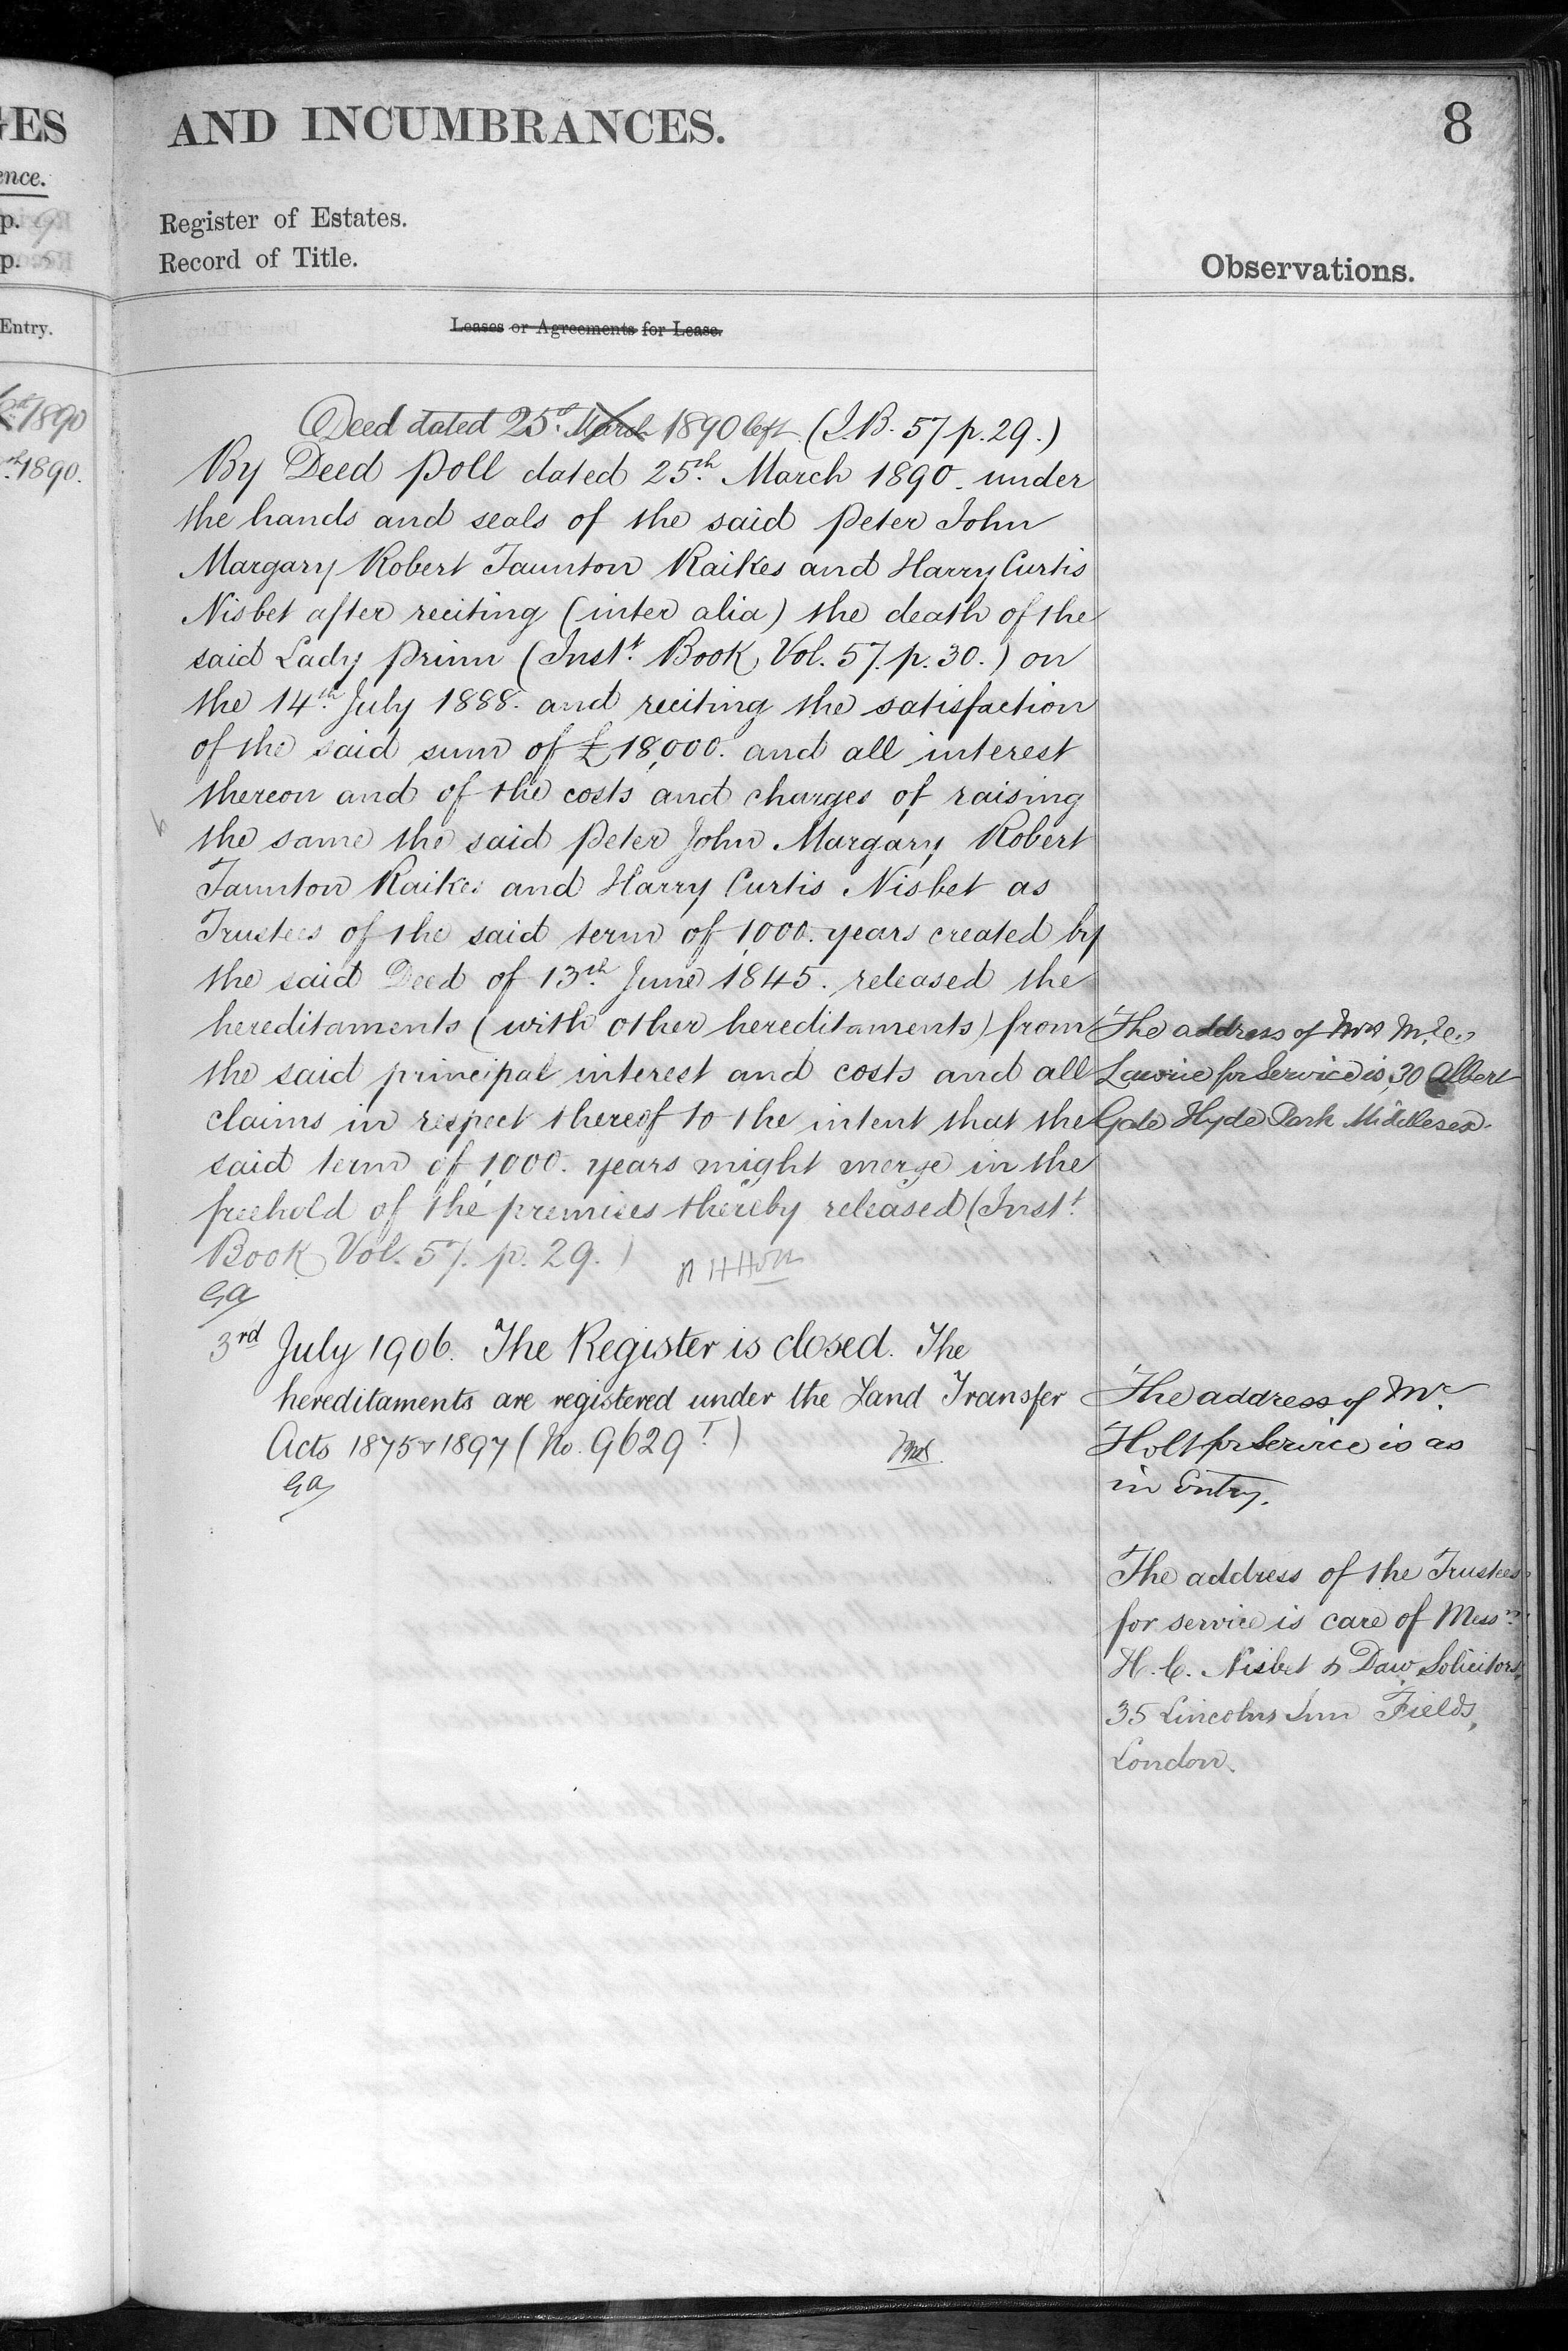 GES
ence.
p. 9
p.
Entry.
1890
1890.
AND INCUMBRANCES.
8
Register of Estates.
Record of Title.
Observations.
Leases or Agreements for Lease.
Deed dated 25th March 1890 left (I.B. 57 p. 29.)
By Deed Poll dated 25th March 1890. under
the hands and seals of the said Peter John
Margary Robert Taunton Raikes and Harry Curtis
Nisbet after reciting (inter alia) the death of the
said Lady Prinn (Instt Book, Vol. 57. p. 30.) on
the 14th July 1888. and reciting the satisfaction
of the said sum of £18,000. and all interest
thereon and of the costs and charges of raising
the same the said Peter John Margary Robert
Taunton Raikes and Harry Curtis Nisbet as
Trustees of the said term of 1,000. years created by
the said Deed of 13th June 1845. released the
hereditaments (with other hereditaments) from
the said principal interest and costs and all
claims in respect thereof to the intent that the
said term of 1,000. years might merge in the
freehold of the premises thereby released (Instt
Book Vol. 57. p. 29.)
3rd July 1906. The Register is closed. The
hereditaments are registered under the Land Transfer
Acts 1875 & 1897 (No. 9629 T)
The address of Mrs
Lawrie for Service is, 30 Albert
Gate Hyde Park Middlesex.
The address of Mr.
Holt for Service is as
in Entry.
The address of the Trustees
for service is care of Messrs.
H. C. Nisbet & Daw, Solicitors,
35 Lincolns Inn Fields,
London.